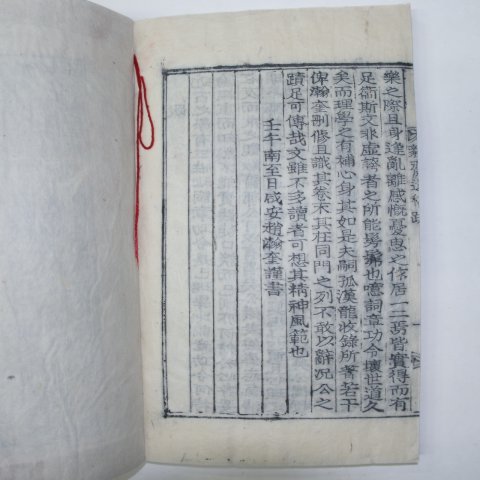 樂之際且身逢亂離感慨憂患之作居一二焉皆實得而有
足衛斯文非虛
者之所能
也噫詞章功令壞世道久
矣而理學之有補心身其如是夫嗣孤漢龍收錄所著若干
俾瀚奎刪修且識其卷末其在同門之列不敢以辭況公之
蹟足可傳哉文雖不多讀者可想其精神風範也
壬午南至日咸安趙瀚奎謹書